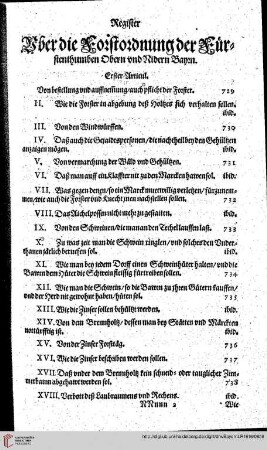 Register
Vber die Forstordnung der Für-
stenthumben Obern vnd Nidern Bayrn.
Erster Articul.
Von bestellung vnd auffnemung/auch pflicht der Forster. 729
II. Wie die Forster in abgebung deß Holtzes sich verhalten sollen. ibid.
III. Von den Windwürffen. 730
IV. Daß auch die / die nachtheil bey den Gehültzen
anzeigen mögen. ibid.
V. Von vermarchung der Wäld vnd Gehültzen. 731
VI. Daß man auff ein Klaffter mit zu den Marcken haven sol. ibid.
VII. Was gegen denen/so ein Marck mutwillig verletzen/fürzunem-
men/wie auch die Förster vnd Knecht jnen nachstellen sollen. 732
VIII. Das Aichelprossen nicht mehr zu gestatten. ibid.
IX. Von den Schweinen/die man an den Techel lauffen last. 733
X. Zu was zeit man die Schwein ringlen/vnd solches den Vnder-
thanen järlich beruffen sol. ibid.
XI. Wie man bey jedem Dorff einen Schweinhüter halten/vnd die
Bawren dem Hüter die Schwein fleissig fürtreiben sollen. 734
XII. Wie man die Schwein/so die Bawren zu jhren Gütern kauffen/
vnd der Herd nit gewohnt haben/hüten sol. 735
XIII. Wie die Zinser sollen behültzt werden. ibid.
XIV. Von dem Brennholtz/dessen man bey Stätten vnd Märckten
notürfftig ist. ibid.
XV. Von der Zinser Forsträg. 736
XVI. Wie die Zinser beschriben werden sollen. 737
XVII. Daß vnder dem Brennholtz kein schneid- oder tauglicher Zim-
merbaum abgehawt werden sol. 738
XVIII. Verbott deß Laubraumens vnd Rechens. ibid.
NNnnn 2 Wie